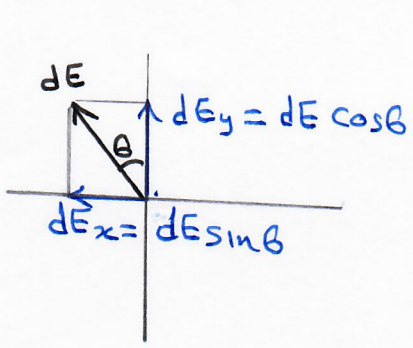 dE
θ
dEy = dE cosθ
dEx = dE sinθ